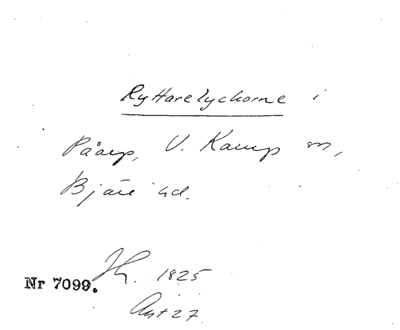 Ryttarelyckorne i
Påarp, V. Karup sn,
Bjäre hd.
Nr 7099. 1825
Akt 27